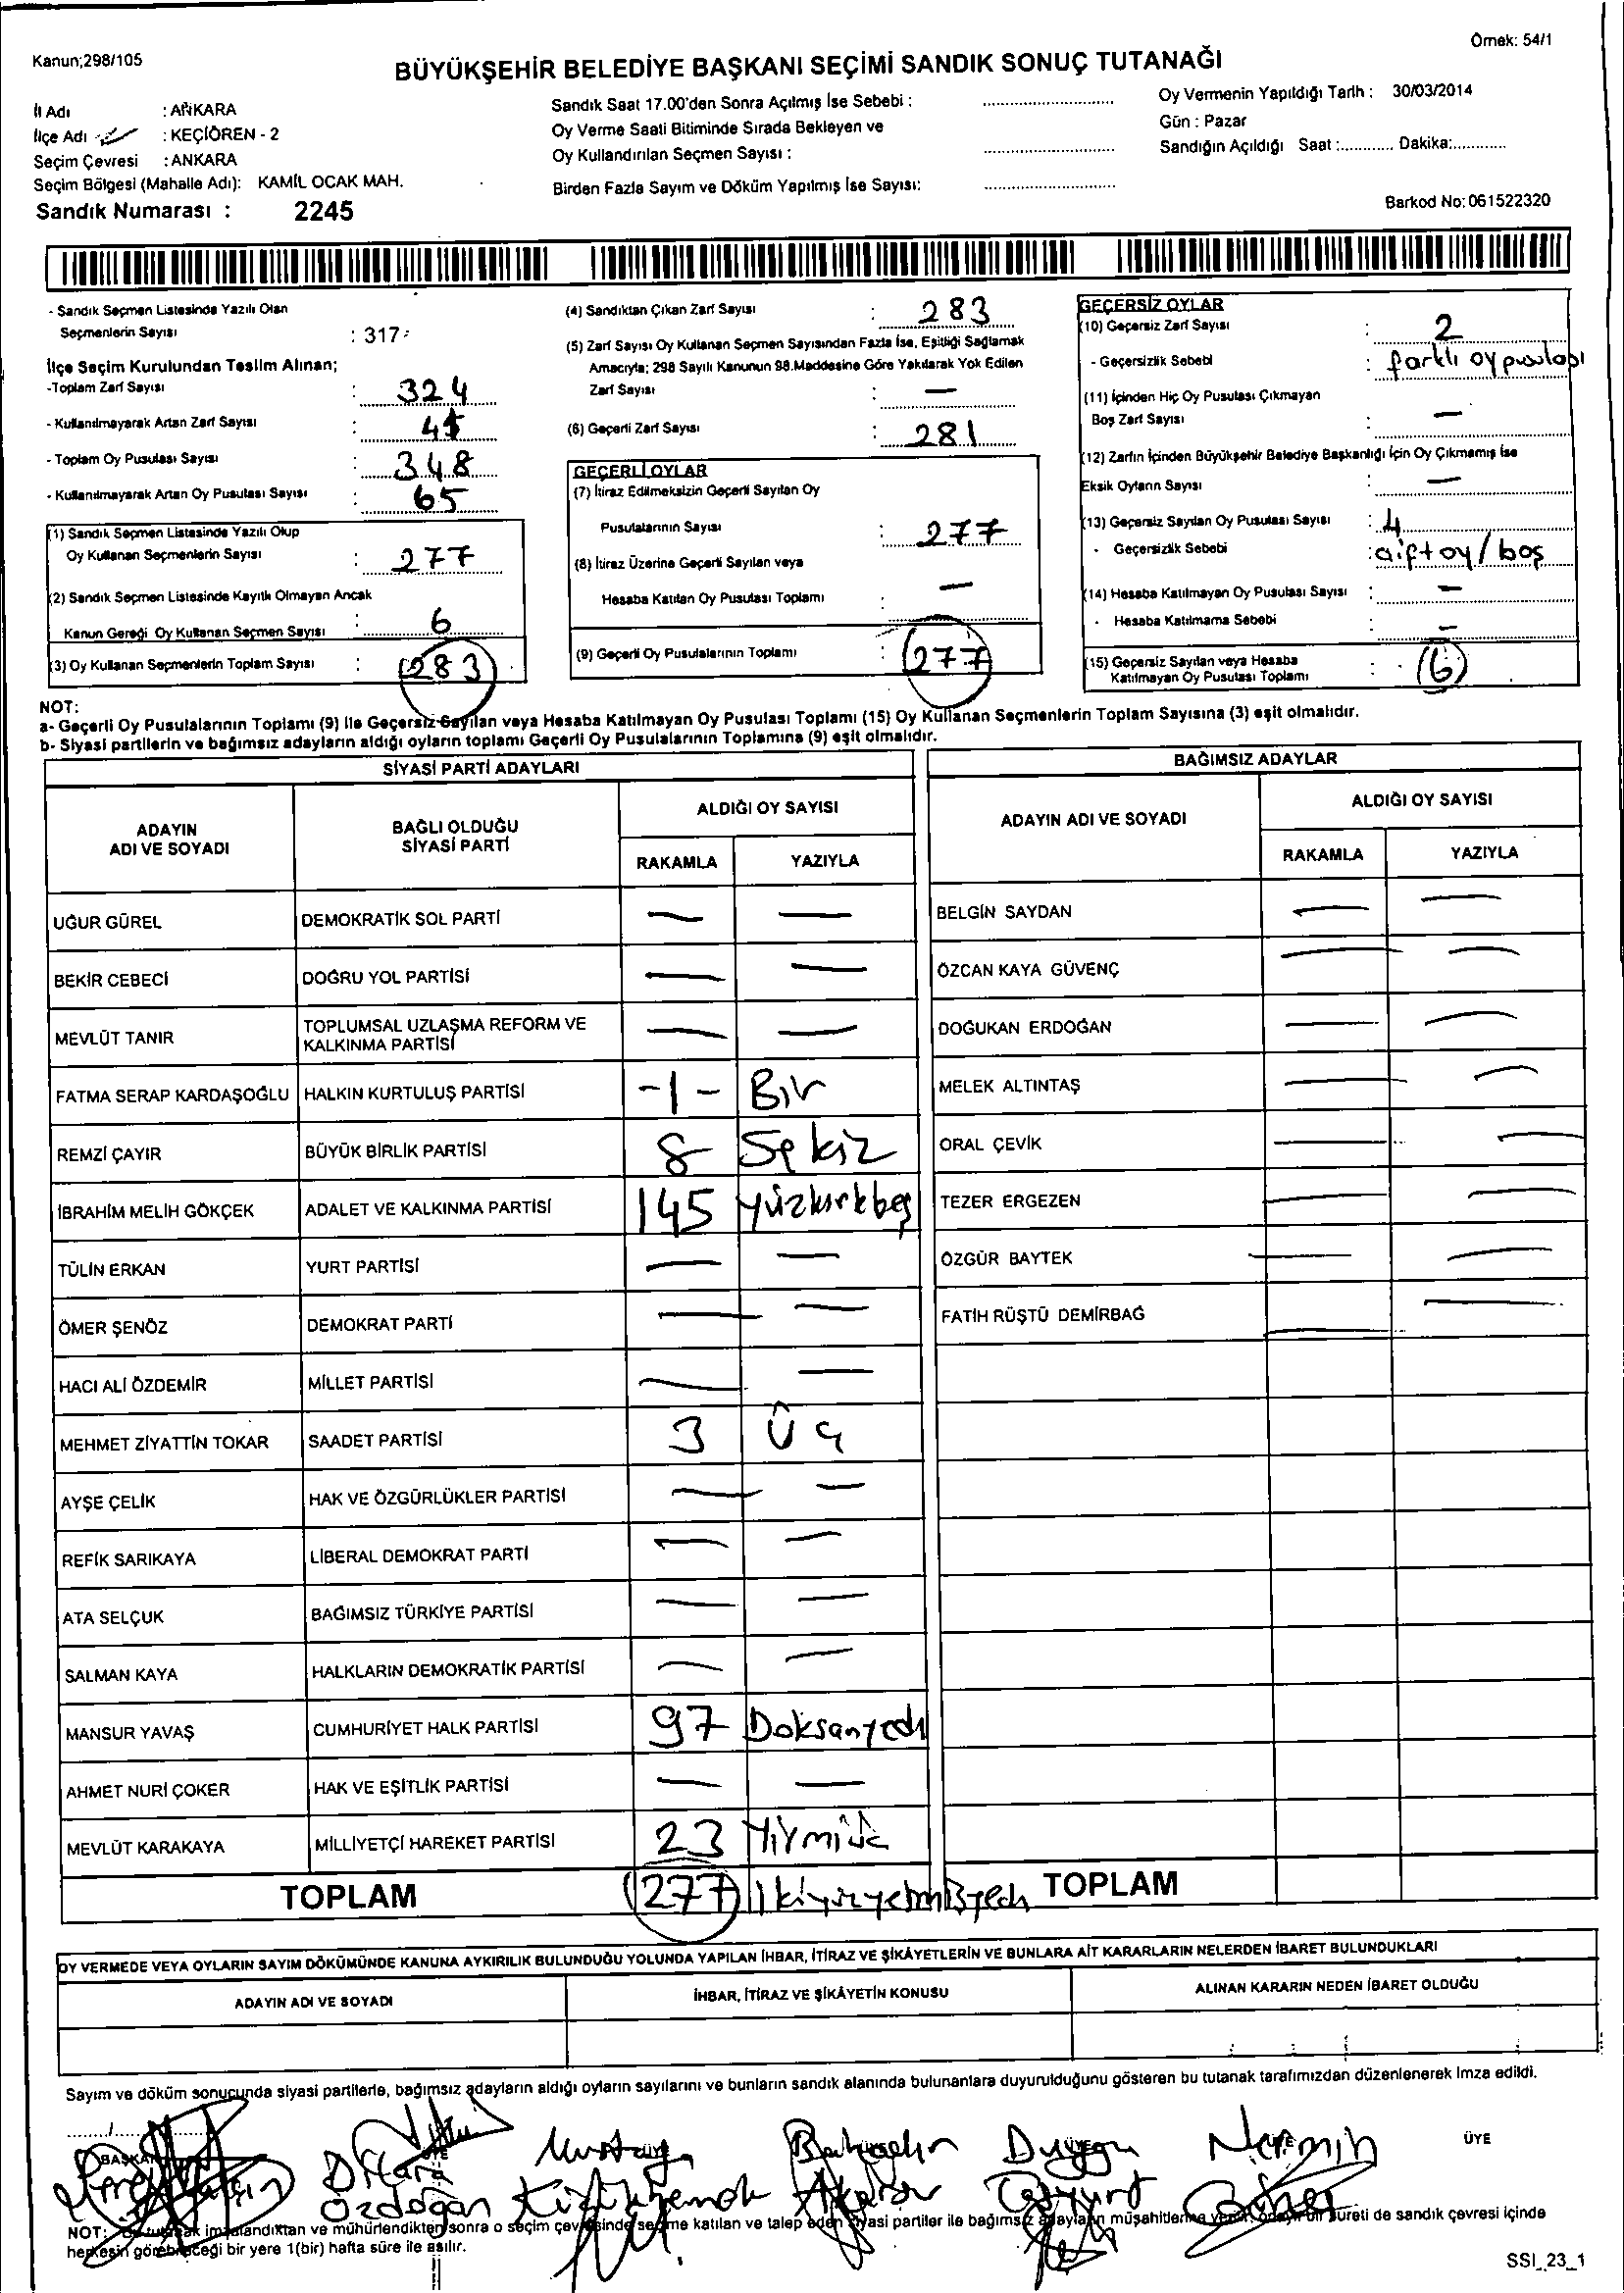 Kanun;298/105
Örnek: 54/1
BÜYÜKŞEHİR BELEDİYE BAŞKANI SEÇİMİ SANDIK SONUÇ TUTANAĞI
İl Adı : ANKARA
İlçe Adı : KEÇİÖREN - 2
Seçim Çevresi : ANKARA
Seçim Bölgesi (Mahalle Adı): KAMİL OCAK MAH.
Sandık Numarası : 2245
Sandık Saat 17.00'den Sonra Açılmış İse Sebebi :
Oy Verme Saati Bitiminde Sırada Bekleyen ve
Oy Kullandırılan Seçmen Sayısı :
Birden Fazla Sayım ve Döküm Yapılmış İse Sayısı:
Oy Vermenin Yapıldığı Tarih : 30/03/2014
Gün : Pazar
Sandığın Açıldığı Saat :............ Dakika:............
Barkod No: 061522320
- Sandık Seçmen Listesinde Yazılı Olan
Seçmenlerin Sayısı : 317
İlçe Seçim Kurulundan Teslim Alınan;
-Toplam Zarf Sayısı : 324
- Kullanılmayarak Artan Zarf Sayısı :
- Toplam Oy Pusulası Sayısı : 348
- Kullanılmayarak Artan Oy Pusulası Sayısı : 65
(1) Sandık Seçmen Listesinde Yazılı Olup
Oy Kullanan Seçmenlerin Sayısı : 277
(2) Sandık Seçmen Listesinde Kayıtlı Olmayan Ancak
Kanun Gereği Oy Kullanan Seçmen Sayısı : 6
(3) Oy Kullanan Seçmenlerin Toplam Sayısı : 283
(4) Sandıktan Çıkan Zarf Sayısı : 283
(5) Zarf Sayısı Oy Kullanan Seçmen Sayısından Fazla İse, Eşitliği Sağlamak
Amacıyla; 298 Sayılı Kanunun 98.Maddesine Göre Yakılarak Yok Edilen
Zarf Sayısı : —
(6) Geçerli Zarf Sayısı : 281
GEÇERLİ OYLAR
(7) İtiraz Edilmeksizin Geçerli Sayılan Oy
Pusulalarının Sayısı : 277
(8) İtiraz Üzerine Geçerli Sayılan veya
Hesaba Katılan Oy Pusulası Toplamı : —
(9) Geçerli Oy Pusulalarının Toplamı : 277
GEÇERSİZ OYLAR
(10) Geçersiz Zarf Sayısı : 2
- Geçersizlik Sebebi : farklı oy pusulası
(11) İçinden Hiç Oy Pusulası Çıkmayan
Boş Zarf Sayısı : —
(12) Zarfın İçinden Büyükşehir Belediye Başkanlığı İçin Oy Çıkmamış İse
Eksik Oyların Sayısı : —
(13) Geçersiz Sayılan Oy Pusulası Sayısı : 4
- Geçersizlik Sebebi : çift oy / boş
(14) Hesaba Katılmayan Oy Pusulası Sayısı : —
- Hesaba Katılmama Sebebi : —
(15) Geçersiz Sayılan veya Hesaba
Katılmayan Oy Pusulası Toplamı : (6)
NOT:
a- Geçerli Oy Pusulalarının Toplamı (9) ile Geçersiz Sayılan veya Hesaba Katılmayan Oy Pusulası Toplamı (15) Oy Kullanan Seçmenlerin Toplam Sayısına (3) eşit olmalıdır.
b- Siyasi partilerin ve bağımsız adayların aldığı oyların toplamı Geçerli Oy Pusulalarının Toplamına (9) eşit olmalıdır.
SİYASİ PARTİ ADAYLARI
ADAYIN ADI VE SOYADI
BAĞLI OLDUĞU SİYASİ PARTİ
ALDIĞI OY SAYISI
RAKAMLA YAZIYLA
UĞUR GÜREL DEMOKRATİK SOL PARTİ — —
BEKİR CEBECİ DOĞRU YOL PARTİSİ — —
MEVLÜT TANIR TOPLUMSAL UZLAŞMA REFORM VE KALKINMA PARTİSİ — —
FATMA SERAP KARDAŞOĞLU HALKIN KURTULUŞ PARTİSİ -1- Bir
REMZİ ÇAYIR BÜYÜK BİRLİK PARTİSİ 8 Sekiz
İBRAHİM MELİH GÖKÇEK ADALET VE KALKINMA PARTİSİ 145 yüzkırkbeş
TÜLİN ERKAN YURT PARTİSİ — —
ÖMER ŞENÖZ DEMOKRAT PARTİ — —
HACI ALİ ÖZDEMİR MİLLET PARTİSİ — —
MEHMET ZİYATTİN TOKAR SAADET PARTİSİ 3 Üç
AYŞE ÇELİK HAK VE ÖZGÜRLÜKLER PARTİSİ — —
REFİK SARIKAYA LİBERAL DEMOKRAT PARTİ — —
ATA SELÇUK BAĞIMSIZ TÜRKİYE PARTİSİ — —
SALMAN KAYA HALKLARIN DEMOKRATİK PARTİSİ — —
MANSUR YAVAŞ CUMHURİYET HALK PARTİSİ 97 Doksanyedi
AHMET NURİ ÇOKER HAK VE EŞİTLİK PARTİSİ — —
MEVLÜT KARAKAYA MİLLİYETÇİ HAREKET PARTİSİ 23 Yirmiüç
TOPLAM 277 İkiyüzyetmişyedi
BAĞIMSIZ ADAYLAR
ADAYIN ADI VE SOYADI
ALDIĞI OY SAYISI
RAKAMLA YAZIYLA
BELGİN SAYDAN — —
ÖZCAN KAYA GÜVENÇ — —
DOĞUKAN ERDOĞAN — —
MELEK ALTINTAŞ — —
ORAL ÇEVİK — —
TEZER ERGEZEN — —
ÖZGÜR BAYTEK — —
FATİH RÜŞTÜ DEMİRBAĞ — —
TOPLAM
OY VERMEDE VEYA OYLARIN SAYIM DÖKÜMÜNDE KANUNA AYKIRILIK BULUNDUĞU YOLUNDA YAPILAN İHBAR, İTİRAZ VE ŞİKÂYETLERİN VE BUNLARA AİT KARARLARIN NELERDEN İBARET BULUNDUKLARI
ADAYIN ADI VE SOYADI
İHBAR, İTİRAZ VE ŞİKÂYETİN KONUSU
ALINAN KARARIN NEDEN İBARET OLDUĞU
Sayım ve döküm sonucunda siyasi partilerle, bağımsız adayların aldığı oyların sayılarını ve bunların sandık alanında bulunanlara duyurulduğunu gösteren bu tutanak tarafımızdan düzenlenerek imza edildi.
BAŞKAN
Dilara Özdoğan
Mustafa
Duygu
Nermin
ÜYE
NOT: Bu tutanak imzalandıktan ve mühürlendikten sonra o seçim çevresinde seçime katılan ve talep eden siyasi partiler ile bağımsız adayların müşahitlerine verilir, onaylı bir sureti de sandık çevresi içinde
herkesin görebileceği bir yere 1(bir) hafta süre ile asılır.
SSI_23_1